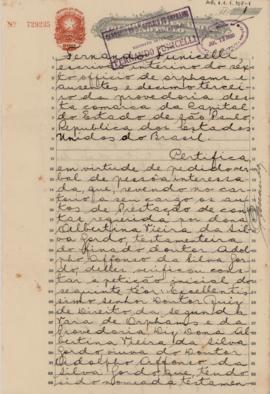 Nº 729235
Fernando Punicelli,
escrivão interino do
officio de orphams e
ausentes e do
da provedoria desta
comarca da Capital
do Estado de São Paulo,
Republica dos Estados
Unidos do Brasil.
FERNANDO PUNICELLI
Certifica,
em virtude de pedido verbal
de pessoa interessada,
que, revendo no cartorio
a seu cargo os autos
de Prestação de contas
requerida por dona
Albertina Vieira da Silva
Gordo, testamenteira
do finado doutor Adolpho
Affonso da Silva Gordo,
delles verificou constar
a petição inicial do
seguinte teor: Excellentissimo
senhor Doutor Juiz
de Direito da segunda
Vara de Orphams e da
Provedoria. Diz Dona Albertina
Vieira da Silva
Gordo, viuva do Doutor
Adolpho Affonso da
Silva Gordo, que tendo
sido nomeada testamen-